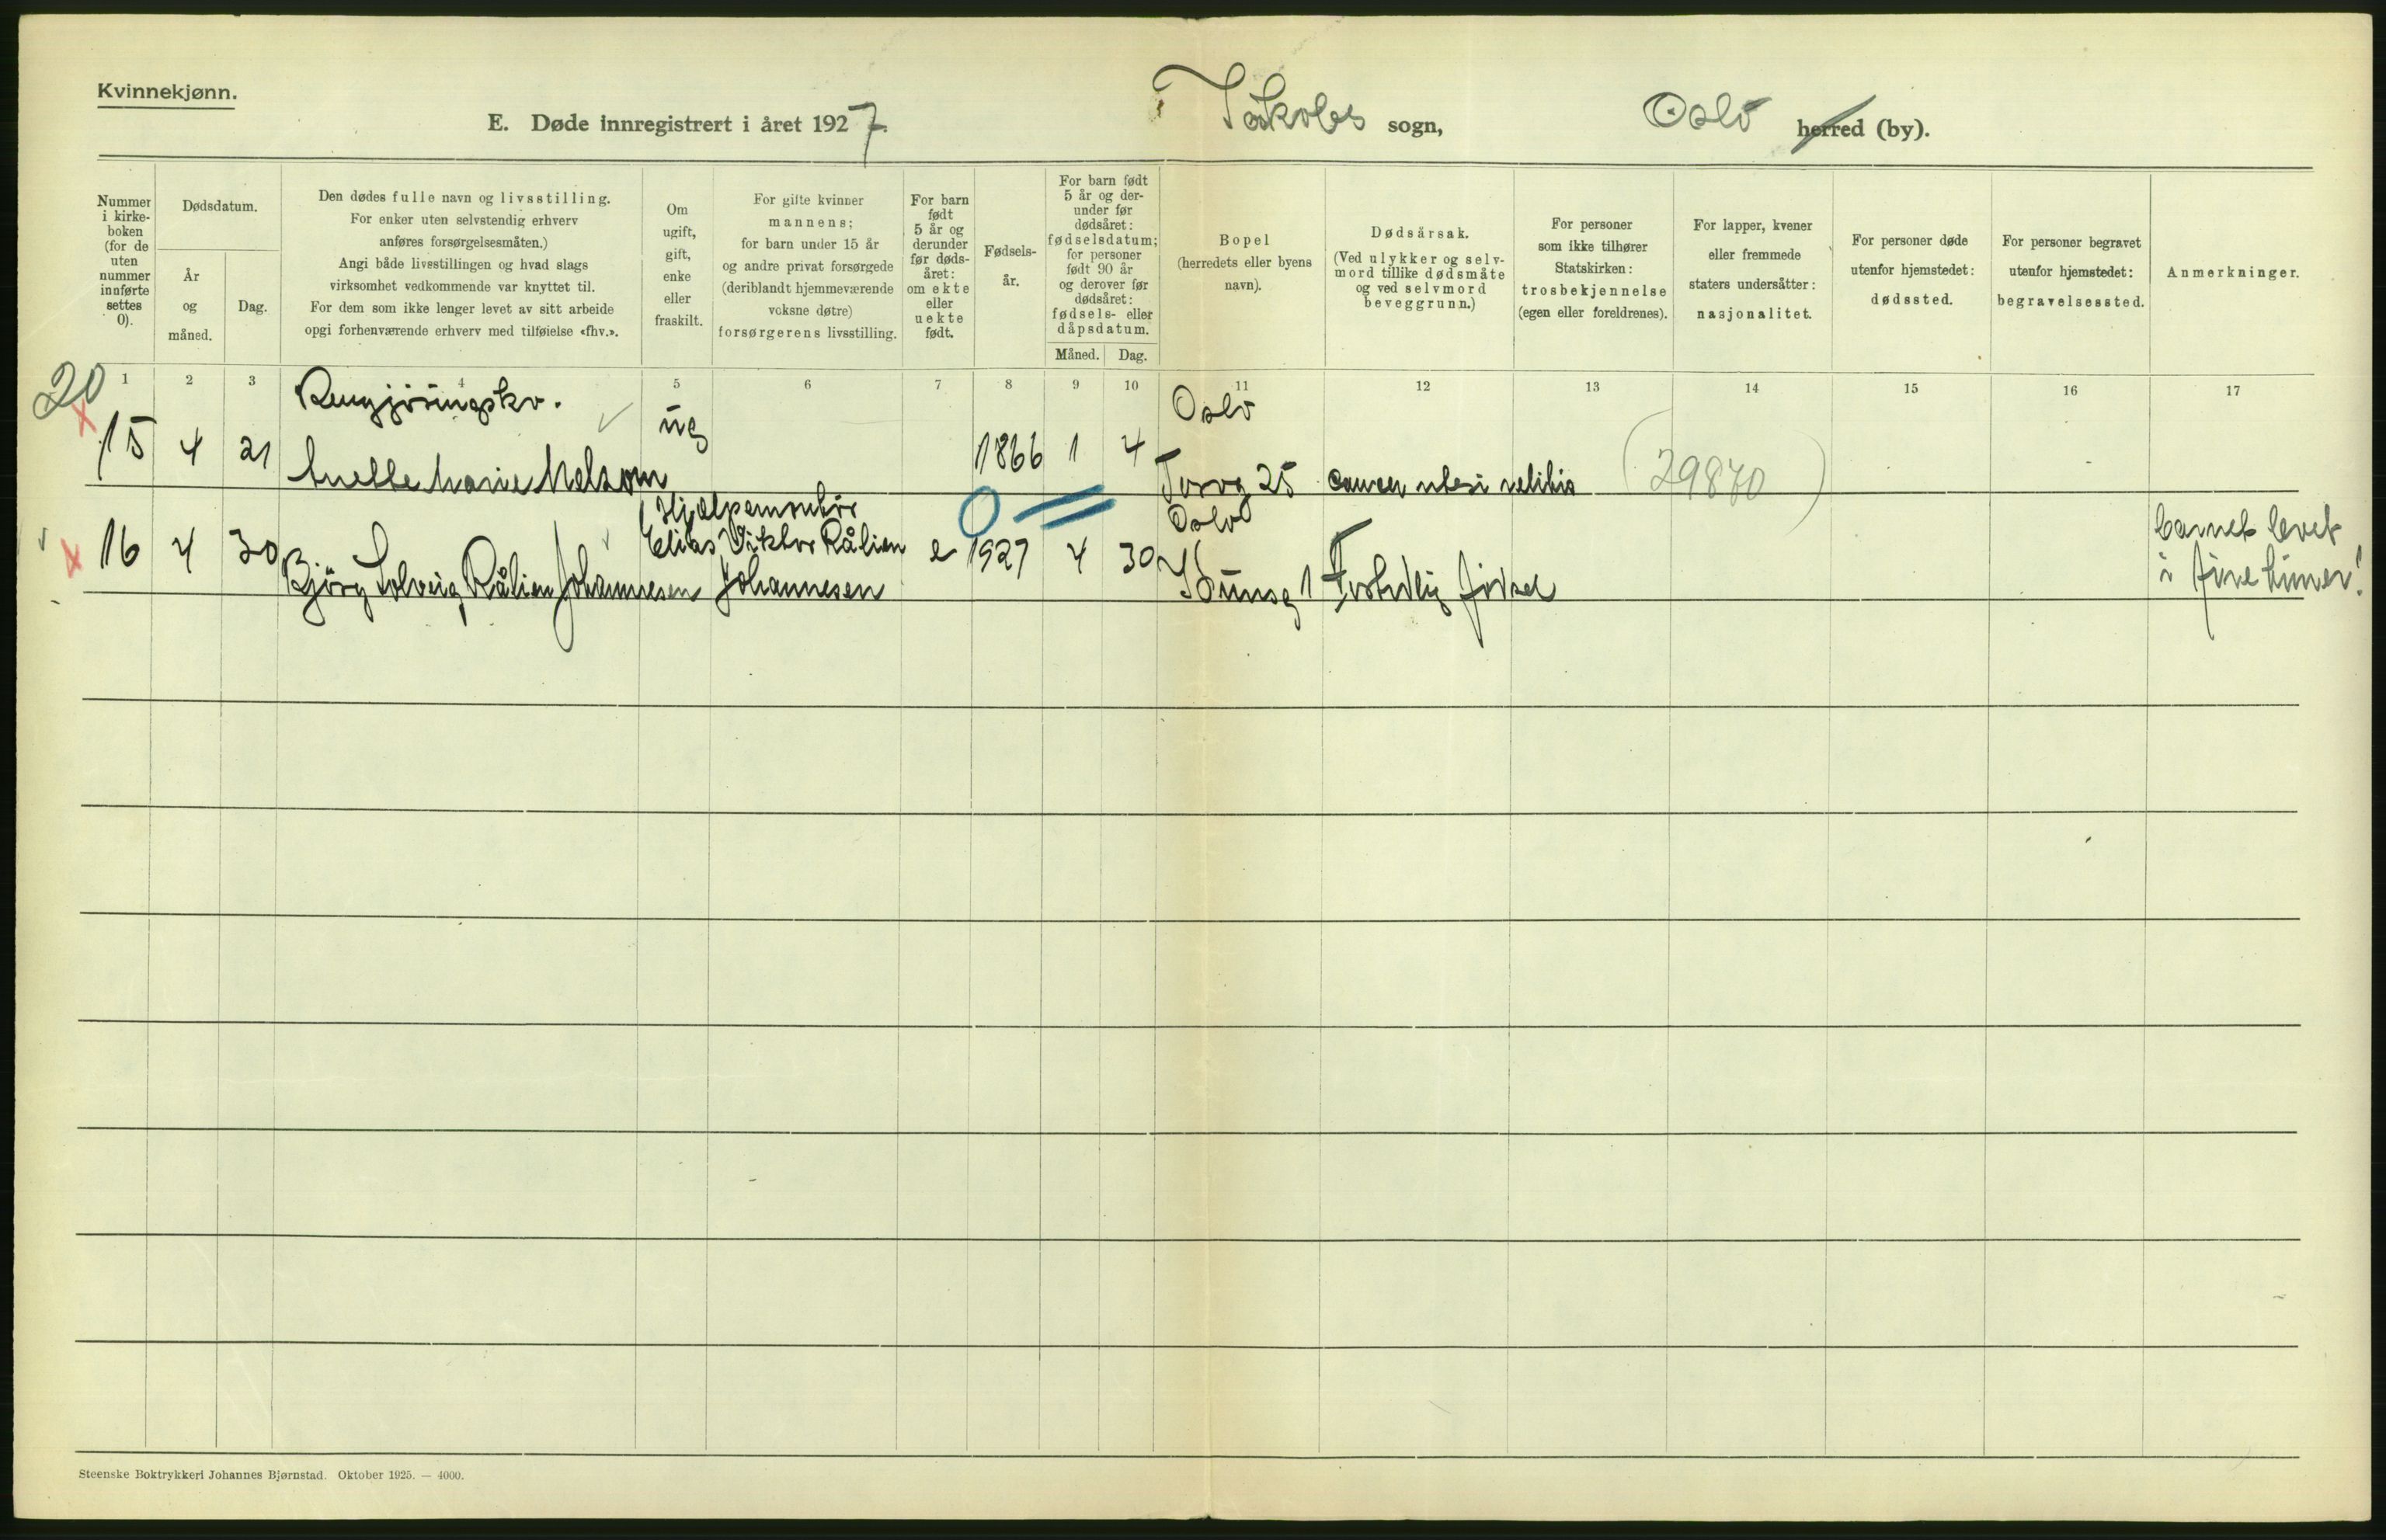 Kvinnekjønn.
E. Døde innregistrert i året 1927. Jakobs sogn, Oslo herred (by).
Nummer i kirke-boken (for de uten nummer innførte settes 0).
Dødsdatum.
År og måned.
Dag.
Den dødes fulle navn og livsstilling.
For enker uten selvstendig erhverv
anføres forsørgelsesmåten.)
Angi både livsstillingen og hvad slags
virksomhet vedkommende var knyttet til.
For dem som ikke lenger levet av sitt arbeide
opgi forhenværende erhverv med tilføielse «fhv.».
Om
ugift,
gift,
enke
eller
fraskilt.
For gifte kvinner
mannens;
for barn under 15 år
og andre privat forsørgede
(deriblandt hjemmeværende
voksne døtre)
forsørgerens livsstilling.
For barn
født
5 år og
derunder
før døds-
året:
om ekte
eller
uekte
født.
Fødsels-
år.
For barn født
5 år og der-
under før
dødsåret:
fødselsdatum;
for personer
født 90 år
og derover før
dødsåret:
fødsels- eller
dåpsdatum.
Måned. Dag.
Bopel
(herredets eller byens
navn).
Dødsårsak.
(Ved ulykker og selv-
mord tillike dødsmåte
og ved selvmord
beveggrunn.)
For personer
som ikke tilhører
Statskirken:
trosbekjennelse
(egen eller foreldrenes).
For lapper, kvener
eller fremmede
staters undersåtter:
nasjonalitet.
For personer døde
utenfor hjemstedet:
dødssted.
For personer begravet
utenfor hjemstedet:
begravelsessted.
Anmerkninger.
1 2 3 4 5 6 7 8 9 10 11 12 13 14 15 16 17
20
Rengjøringskv. ug Oslo
15 4 21 Marie 1866 1 4 Torvg 25 (29870)
Hjælpemontør Oslo
Elias Viktor Rålien
16 4 30 Bjørg Solveig Rålien Johannesen Johannesen e 1927 4 30 Idunsg 1 Fortidlig fødsel
barnet levet
i fire timer!
Steenske Boktrykkeri Johannes Bjørnstad. Oktober 1925. — 4000.